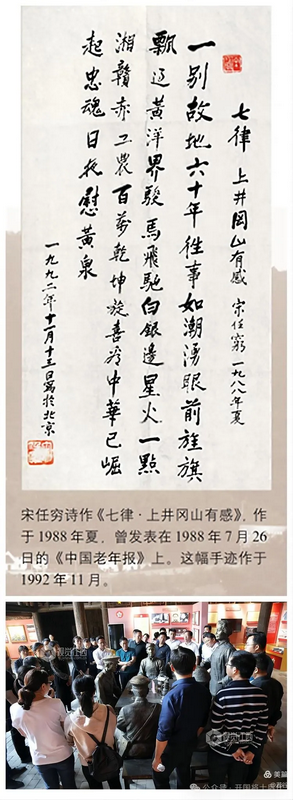 七律 上井岡山有感 宋任窮 一九八八年夏
一别故地六十年往事如潮湧眼前旌旗
飄过黃洋界駿馬飛馳白銀邊星火一點
湘贛赤工農百萬乾坤旋喜看中華已崛
起忠魂日夜慰黃泉
一九九二年十一月十三日寫於北京
宋任穷诗作《七律·上井冈山有感》，作
于1988年夏，曾发表在1988年7月26
日的《中国老年报》上。这幅手迹作于
1992年11月。
视觉江西
视觉江西
美篇
公众号·开国将士